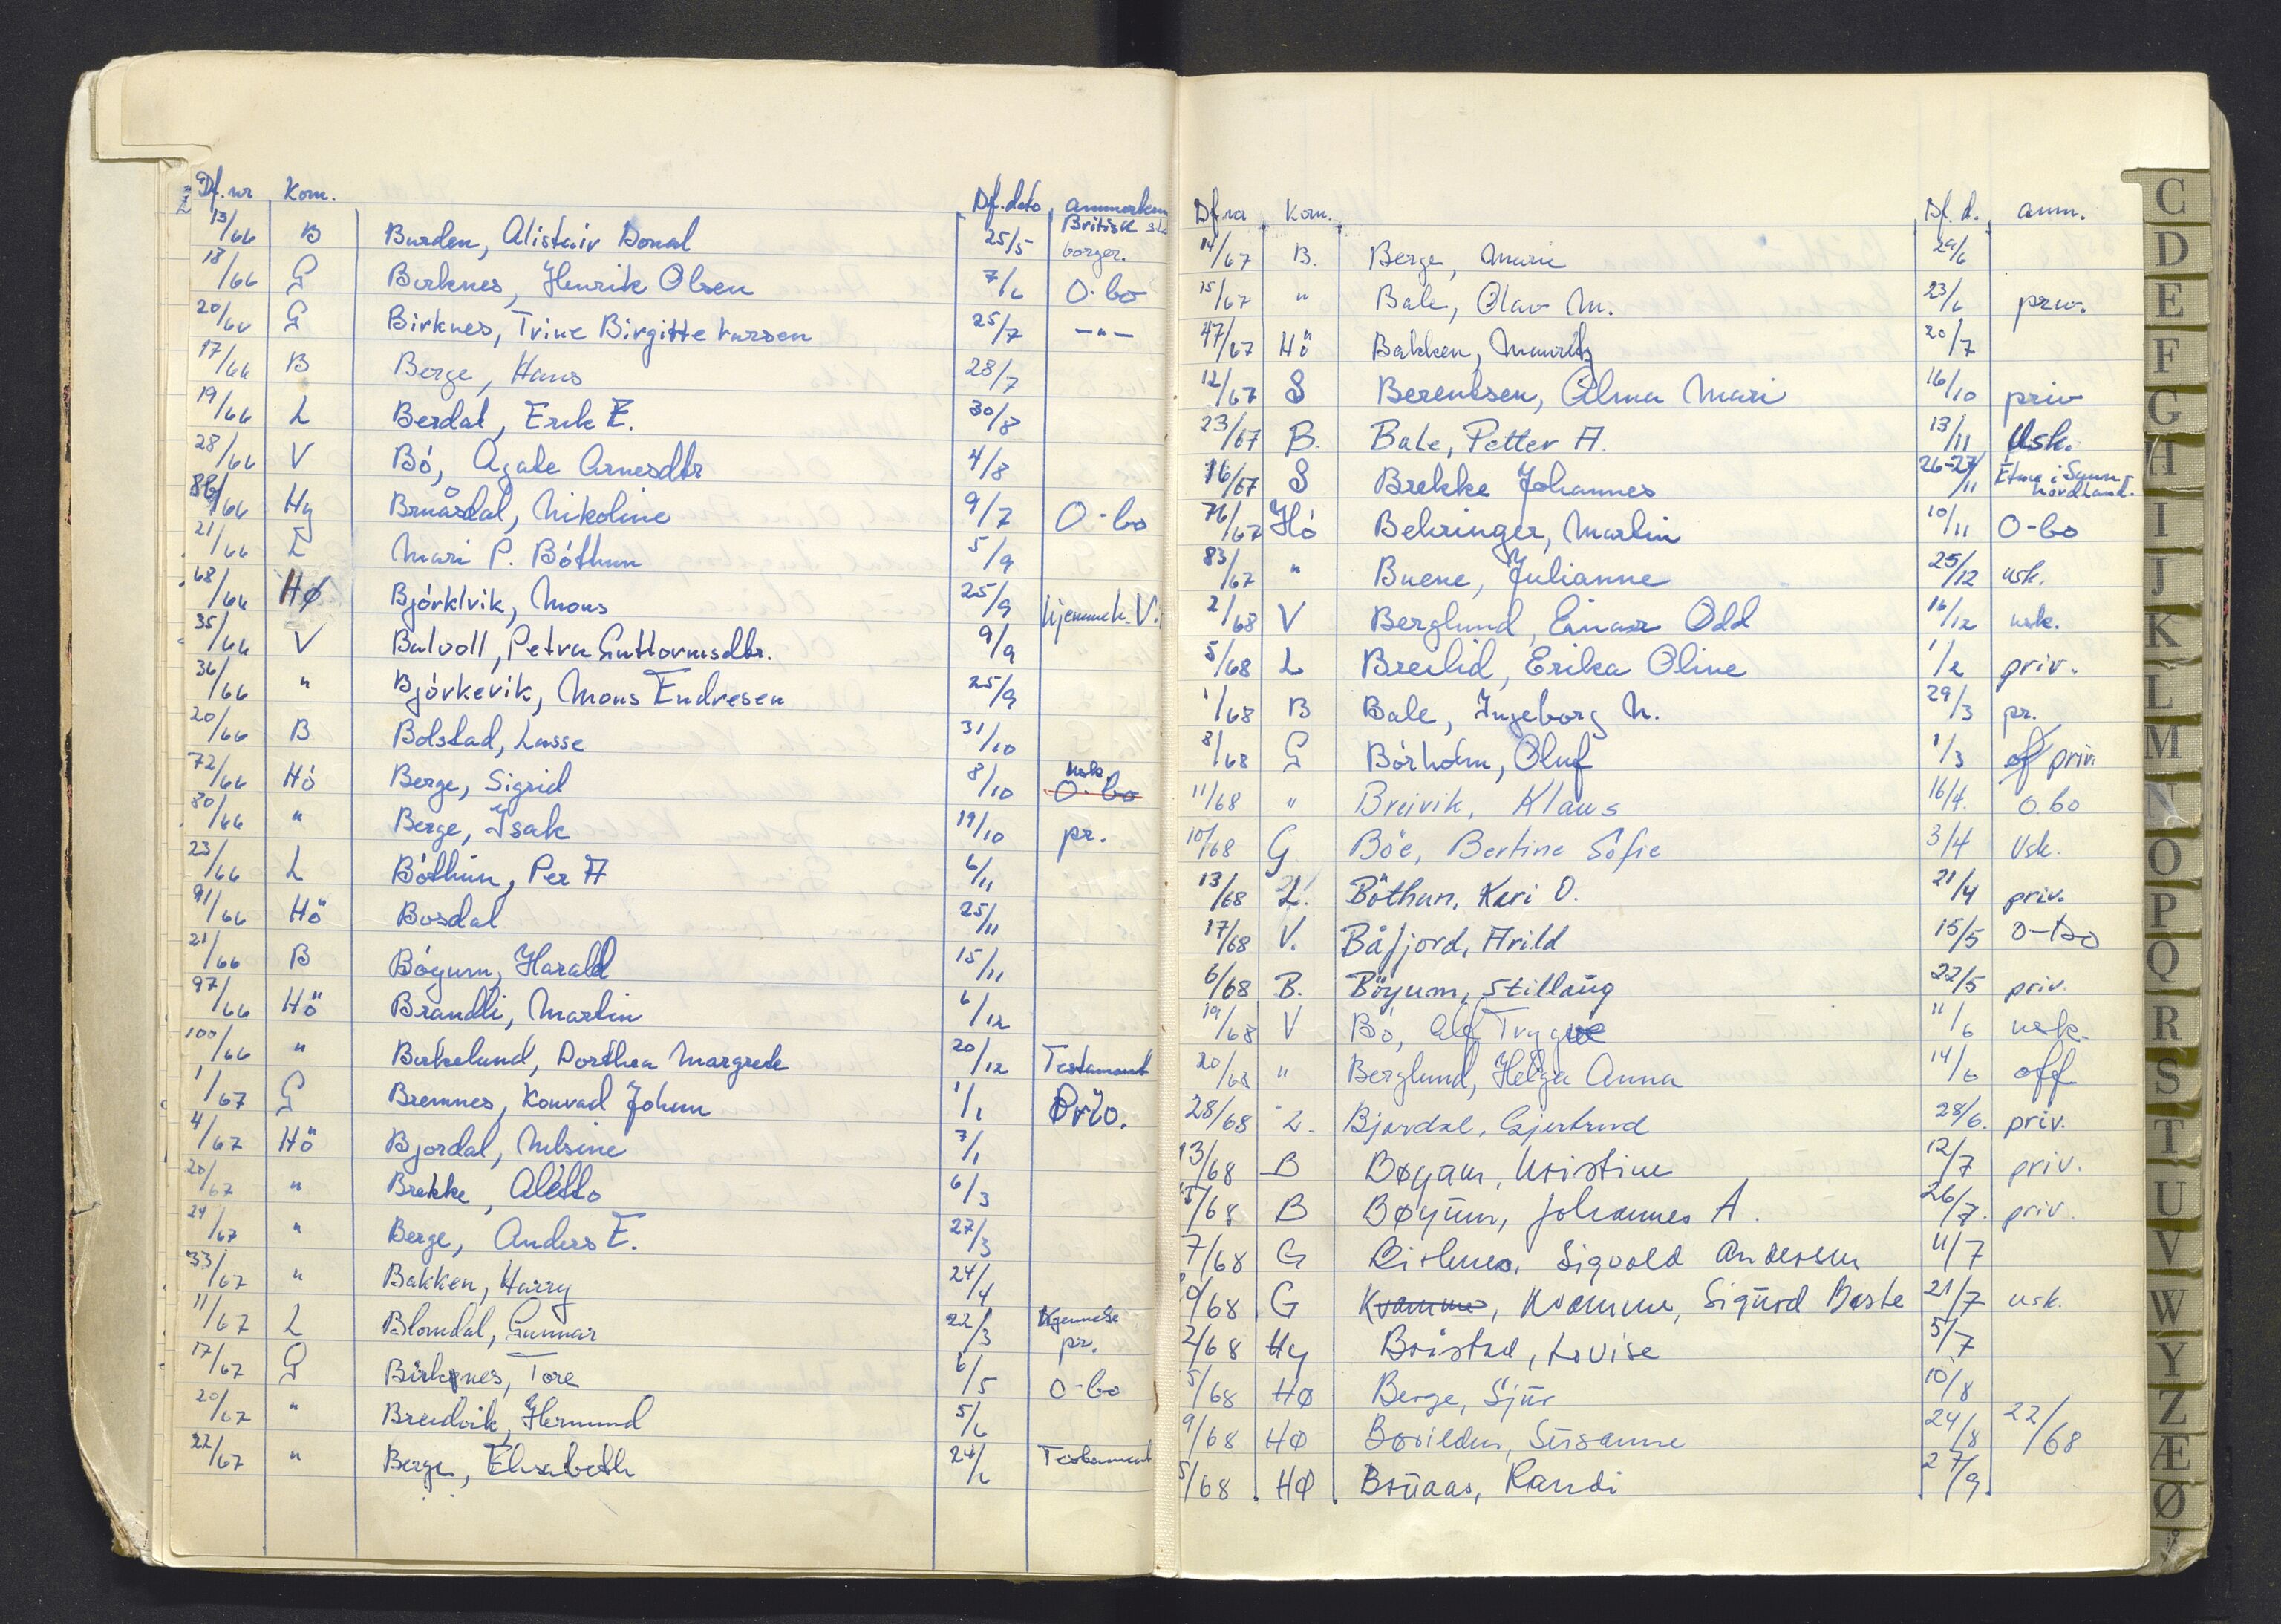 Df.nr Kom. Df.dato anmerkn
13/66 B Burden, Alistair Donal 25/5 Britisk borger.
18/66 G Birknes, Henrik Olsen 7/6 O-bo
20/66 G Birknes, Trine Birgitte Larsen 25/7 -"-
17/66 B Berge, Hans 28/7
19/66 L Berdal, Erik E. 30/8
28/66 V Bö, Agate Arnesdtr 4/8
86/66 Hy Bruåsdal, Nikoline 9/7 O-bo
21/66 L Mari P. Böthun 5/9
68/66 HØ Björklvik, Mons 25/9 hjemmeh. V.
35/66 V Balvoll, Petra Guttormsdtr. 9/9
36/66 " Björkevik, Mons Endresen 25/9
20/66 B Bolstad, Lasse 31/10
72/66 Hö Berge, Sigrid 8/10 usk. O-bo
80/66 " Berge, Isak 19/10 pr.
23/66 L Böthun, Per A 6/11
91/66 Hö Bosdal 25/11
21/66 B Böyum, Harald 15/11
97/66 Hö Brandli, Martin 6/12
100/66 " Birkelund, Dorthea Margrete 20/12 Testament
1/67 G Bremnes, Konrad Johan 1/1 Priv.
4/67 Hö Bjordal, Nilsine 7/1
20/67 " Brekke, Aletto 6/3
24/67 " Berge, Anders E. 27/3
33/67 " Bakken, Harry 24/4
11/67 L Blomdal, Gunnar 22/3 pr.
17/67 G Birknes, Tore 6/5 O-bo
20/67 " Breidvik, Hermund 5/6
22/67 " Berge, Elisabeth 24/6 Testament
Df.nr Kom. Df.d. anm.
14/67 B. Berge, Marie 29/6
15/67 " Bale, Olav M. 23/6 priv.
47/67 Hö Bakken, Mauritz 20/7
12/67 S Berentsen, Alma Mari 16/10 priv
23/67 B. Bale, Petter A. 13/11 Usk.
16/67 S Brekke Johannes 26-27/11 Etne i Sunnhordland.
76/67 Hö Behringer, Martin 10/11 O-bo
83/67 " Buene, Julianne 25/12 usk.
2/68 V Berglund, Einar Odd 16/12 usk.
5/68 L Breilid, Erika Oline 1/2 priv.
1/68 B Bale, Ingeborg N. 29/3 pr.
8/68 G Börholm, Oluf 1/3 of priv.
11/68 " Breivik, Klaus 16/4. O.bo
10/68 G Böe, Bertine Sofie 3/4 Usk.
13/68 L. Böthun, Kari O. 21/4 priv.
17/68 V. Båfjord, Arild 15/5 O-bo
6/68 B. Böyum, Stillaug 22/5 priv.
19/68 V Bö, Alf Trygve 11/6 usk.
20/68 " Berglund, Helga Anna 14/6 off
28/68 L. Bjordal, Gjertrud 28/6. priv.
13/68 B Bøyum, Kristine 12/7 priv.
5/68 B Bøyum, Johannes A. 26/7. priv.
7/68 G Birknes, Sigvald Andersen 11/7
9/68 G Kvamme, Kvamme, Sigurd Børste 21/7 usk.
2/68 Hy Bråstad, Lovise 5/7
5/68 HØ Berge, Sjur 10/8
9/68 HØ Susanne 24/8 22/68
5/68 HØ Bruaas, Randi 27/9
C
D
E
F
G
H
I
J
K
L
M
N
O
P
Q
R
S
T
U
V
W
Y
Z
Æ
Ø